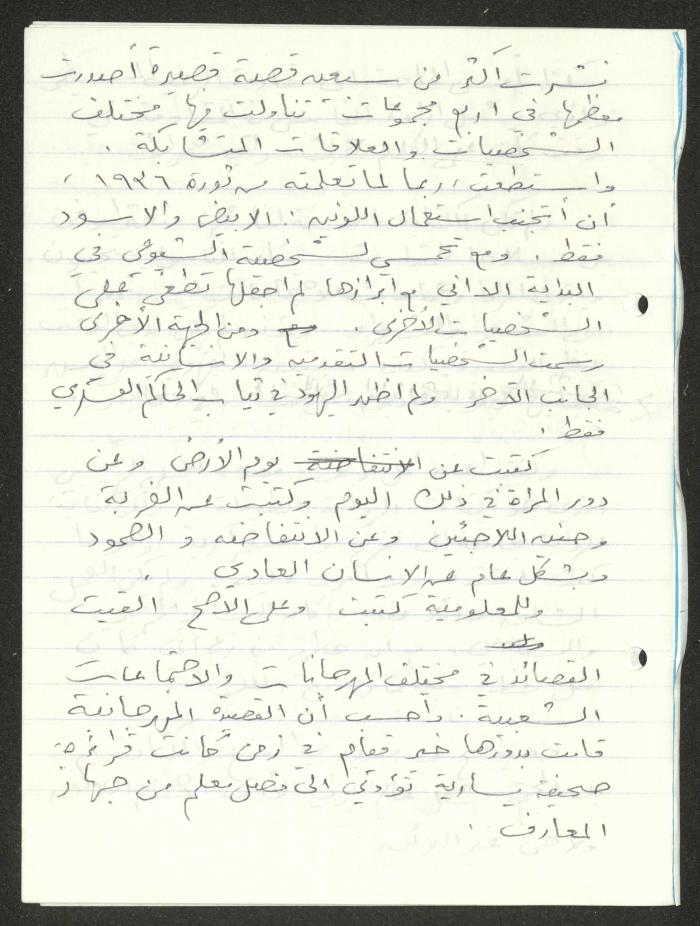 نشرت اكثر من سبعين قصة قصيرة أصدرت
معظمها في اربع مجموعات تناولت فيها مختلف
الشخصيات والعلاقات المتشابكة .
واستطعت، ربما لما تعلمته من ثورة ١٩٣٦ ،
أن أتجنب استعمال اللونين : الابيض والاسود
فقط . ومع تحمسي لشخصية الشيوعي في
البداية الا اني مع ابرازها لم اجعلها تطغي على
الشخصيات الأخرى . ومن الجهة الأخرى
رسمت الشخصيات التقدمية والانسانية في
الجانب الآخر ولم اظهر اليهود في ثياب الحاكم العسكري
فقط .
كتبت عن الانتفاضة يوم الأرض وعن
دور المرأة في ذلك اليوم وكتبت عن الغربة
وحنين اللاجئين وعن الانتفاضه والصمود
وبشكل عام عن الانسان العادي .
وللمعلومية كتبت وعلى الاصح القيت
القصائد في مختلف المهرجانات والاجتماعات
الشعبية . واحسب أن القصيدة المهرجانية
قامت بدورها خير قيام في زمن كانت قراءة
صحيفة يسارية تؤدي الى فصل معلم من جهاز
المعارف